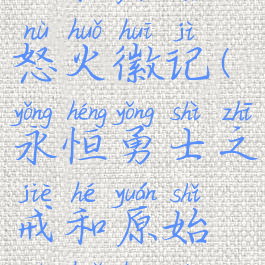 nù huǒ huī jì
怒火徽记(
yǒng héng yǒng shì zhī
永恒勇士之
jiè hé yuán shǐ
戒和原始